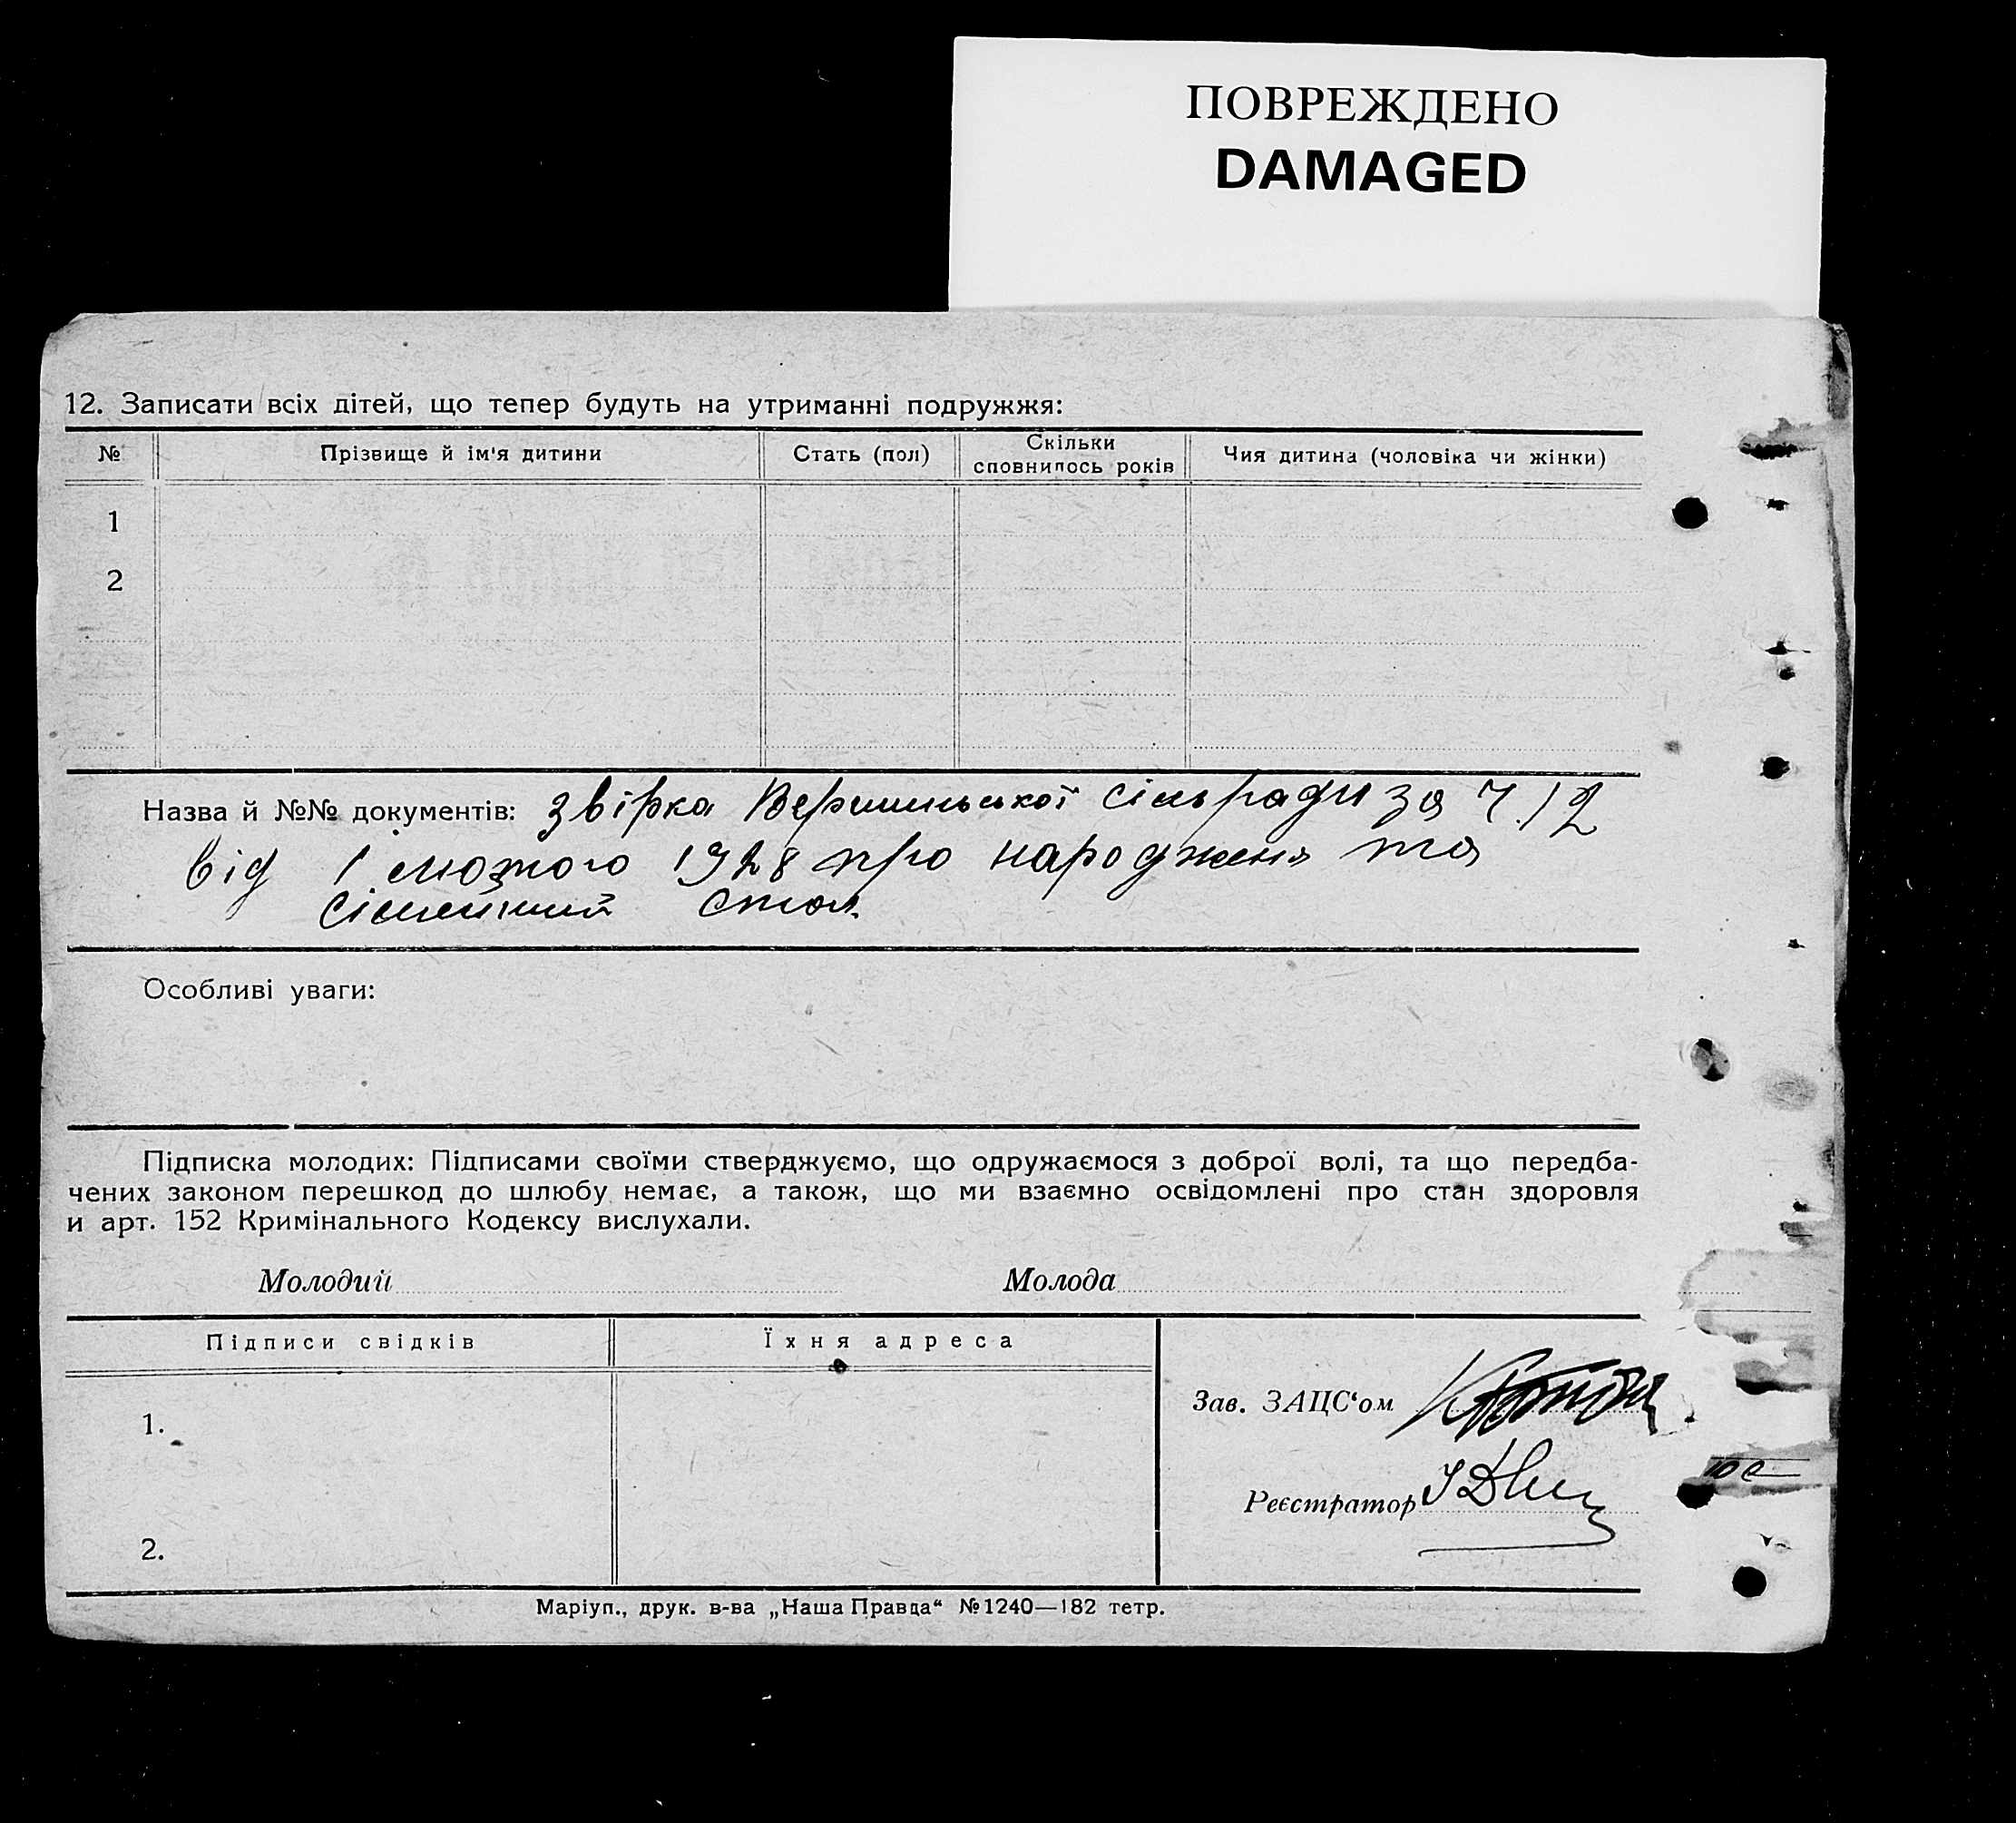 ПОВРЕЖДЕНО
DAMAGED
12. Записати всіх дітей, що тепер будуть на утриманні подружжя:
№ Прізвище й ім'я дитини Стать (пол) Скільки сповнилось років Чия дитина (чоловіка чи жінки)
1
2
Назва й №№ документів: звірка сільради за ч. 12
від 1 лютого 1928 про народженя та
сімейний стан
Особливі уваги:
Підписка молодих: Підписами своїми стверджуємо, що одружаємося з доброї волі, та що передба-
чених законом перешкод до шлюбу немає, а також, що ми взаємно освідомлені про стан здоровля
и арт. 152 Кримінального Кодексу вислухали.
Молодий Молода
Підписи свідків Їхня адреса
Зав. ЗАЦС‘ом
1.
Реєстратор
2.
Маріуп., друк. в-ва „Наша Правда“ №1240—182 тетр.